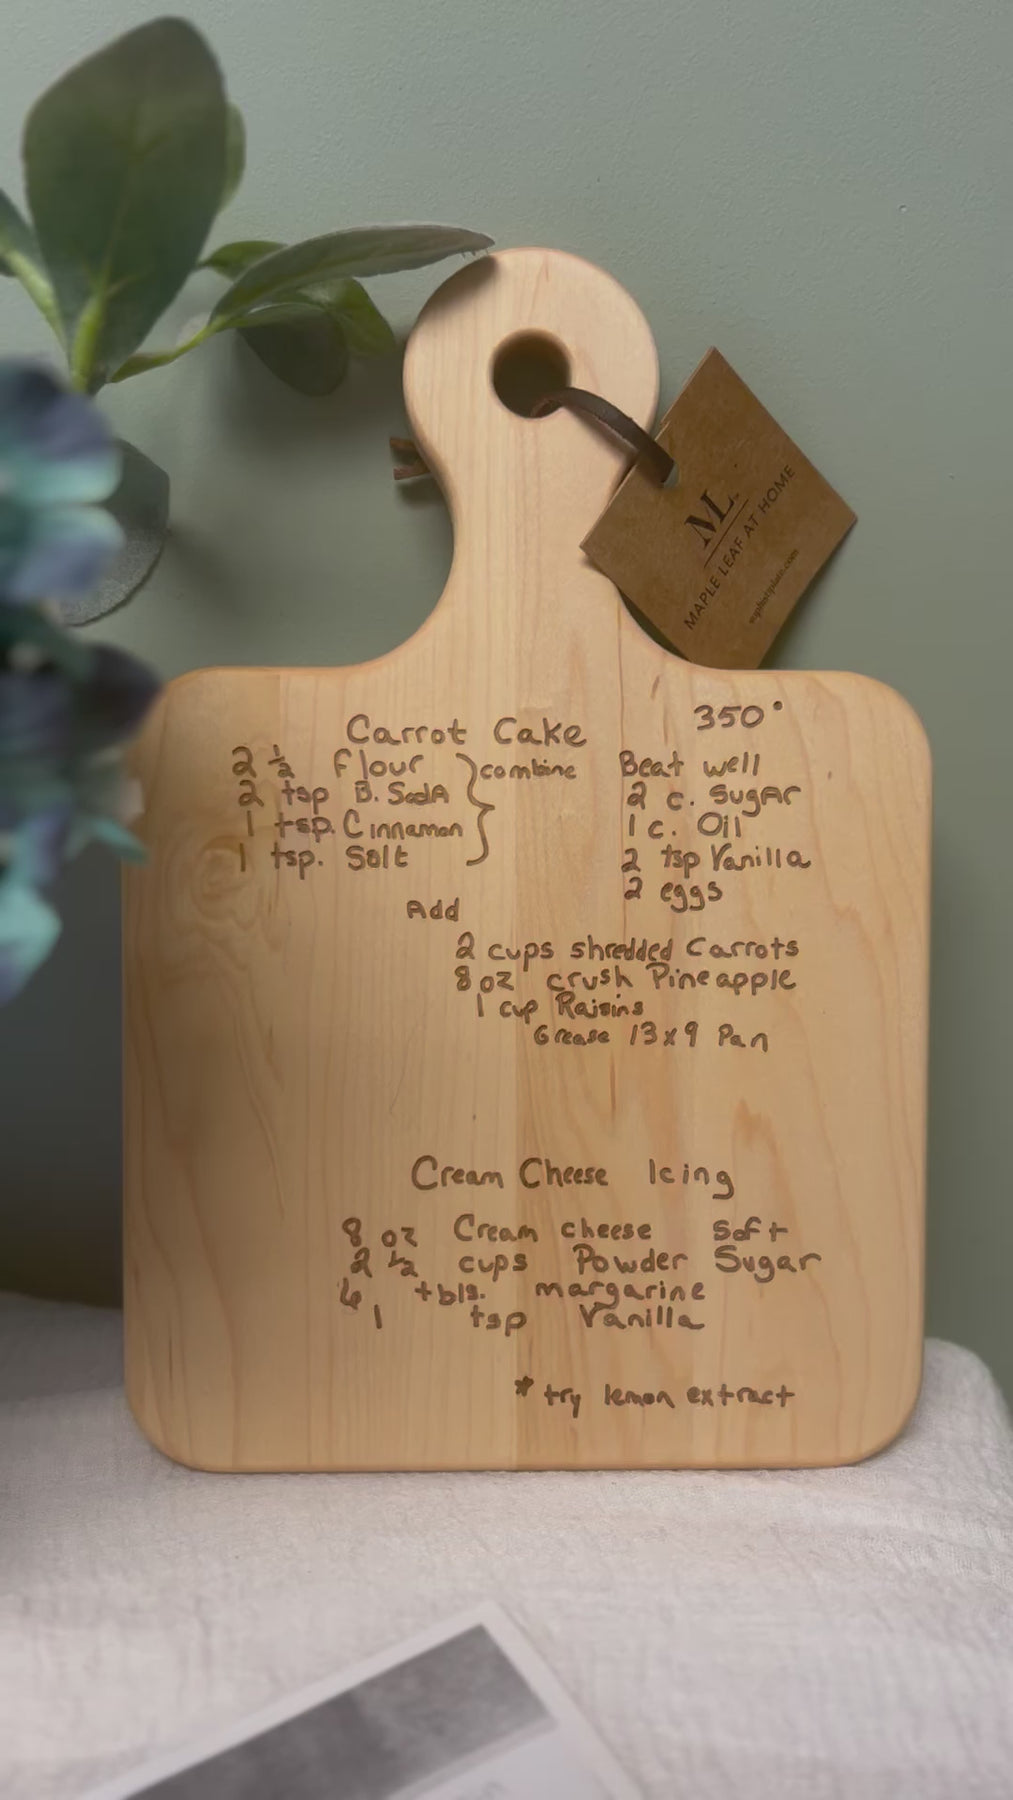 ML
MAPLE LEAF AT HOME
Carrot Cake
350°
2 ½ flour
2 tsp B. SodA
1 tsp. Cinnamon
1 tsp. Salt
combine
Beat well
2 c. SugAr
1 c. Oil
2 tsp Vanilla
2 eggs
Add
2 cups shredded Carrots
8 oz crush Pineapple
1 cup Raisins
Grease 13x9 Pan
Cream Cheese Icing
8 oz Cream cheese soft
2 ½ cups Powder Sugar
6 tbls. margarine
1 tsp Vanilla
* try lemon extract